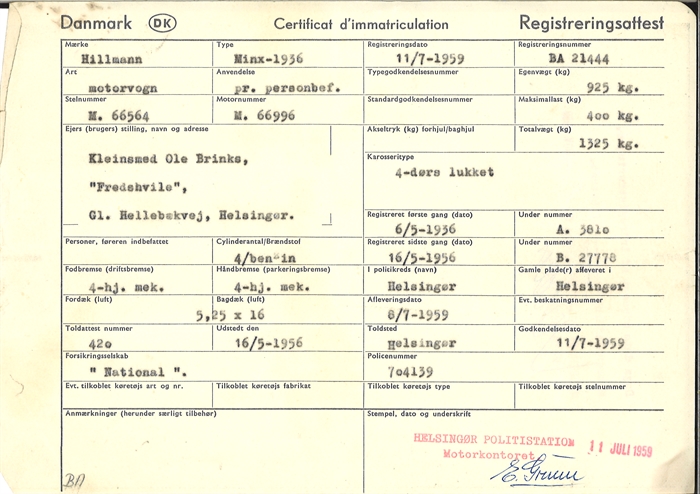 Danmark DK Certificat d'immatriculation Registreringsattest
Mærke Type Registreringsdato Registreringsnummer
Hillmann Minx-1936 11/7-1959 BA 21444
Art Anvendelse Typegodkendelsesnummer Egenvægt (kg)
motorvogn pr. personbef. 925 kg.
Stelnummer Motornummer Standardgodkendelsesnummer Maksimallast (kg)
M. 66564 M. 66996 400 kg.
Ejers (brugers) stilling, navn og adresse Akseltryk (kg) forhjul/baghjul Totalvægt (kg)
1325 kg.
Kleinsmed Ole Brinks, Karosseritype
4-dørs lukket
"Fredshvile",
Gl. Hellebækvej, Helsingør. Registreret første gang (dato) Under nummer
6/5-1936 A. 3810
Personer, føreren indbefattet Cylinderantal/Brændstof Registreret sidste gang (dato) Under nummer
4/benzin 16/5-1956 B. 27778
Fodbremse (driftsbremse) Håndbremse (parkeringsbremse) I politikreds (navn) Gamle plade(r) afleveret i
4-hj. mek. 4-hj. mek. Helsingør Helsingør
Fordæk (luft) Bagdæk (luft) Afleveringsdato Evt. beskatningsnummer
5,25 x 16 8/7-1959
Toldattest nummer Udstedt den Toldsted Godkendelsesdato
420 16/5-1956 Helsingør 11/7-1959
Forsikringsselskab Policenummer
" National ". 704139
Evt. tilkoblet køretøjs art og nr. Tilkoblet køretøjs fabrikat Tilkoblet køretøjs type Tilkoblet køretøjs stelnummer
Anmærkninger (herunder særligt tilbehør) Stempel, dato og underskrift
HELSINGØR POLITISTATION 11 JULI 1959
Motorkontoret
BA